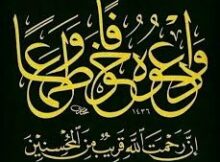 وادعوه خوفا وطمعا
١٤٣٦
إن رحمت الله قريب من المحسنين